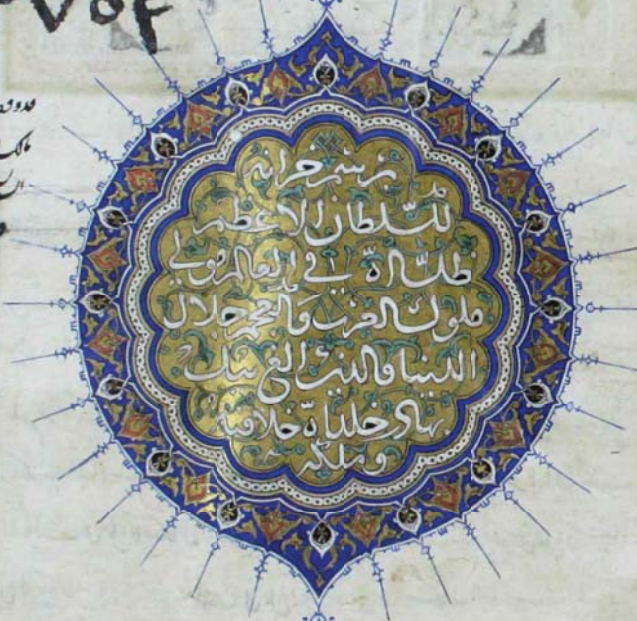 برسم خزانة
للسلطان الاعظم
ظل الله في العالم مولى
ملوك العرب والعجم جلال
الدنيا والدين الغ بيك
بهادر خلد الله خلافته
وملكه
مالك